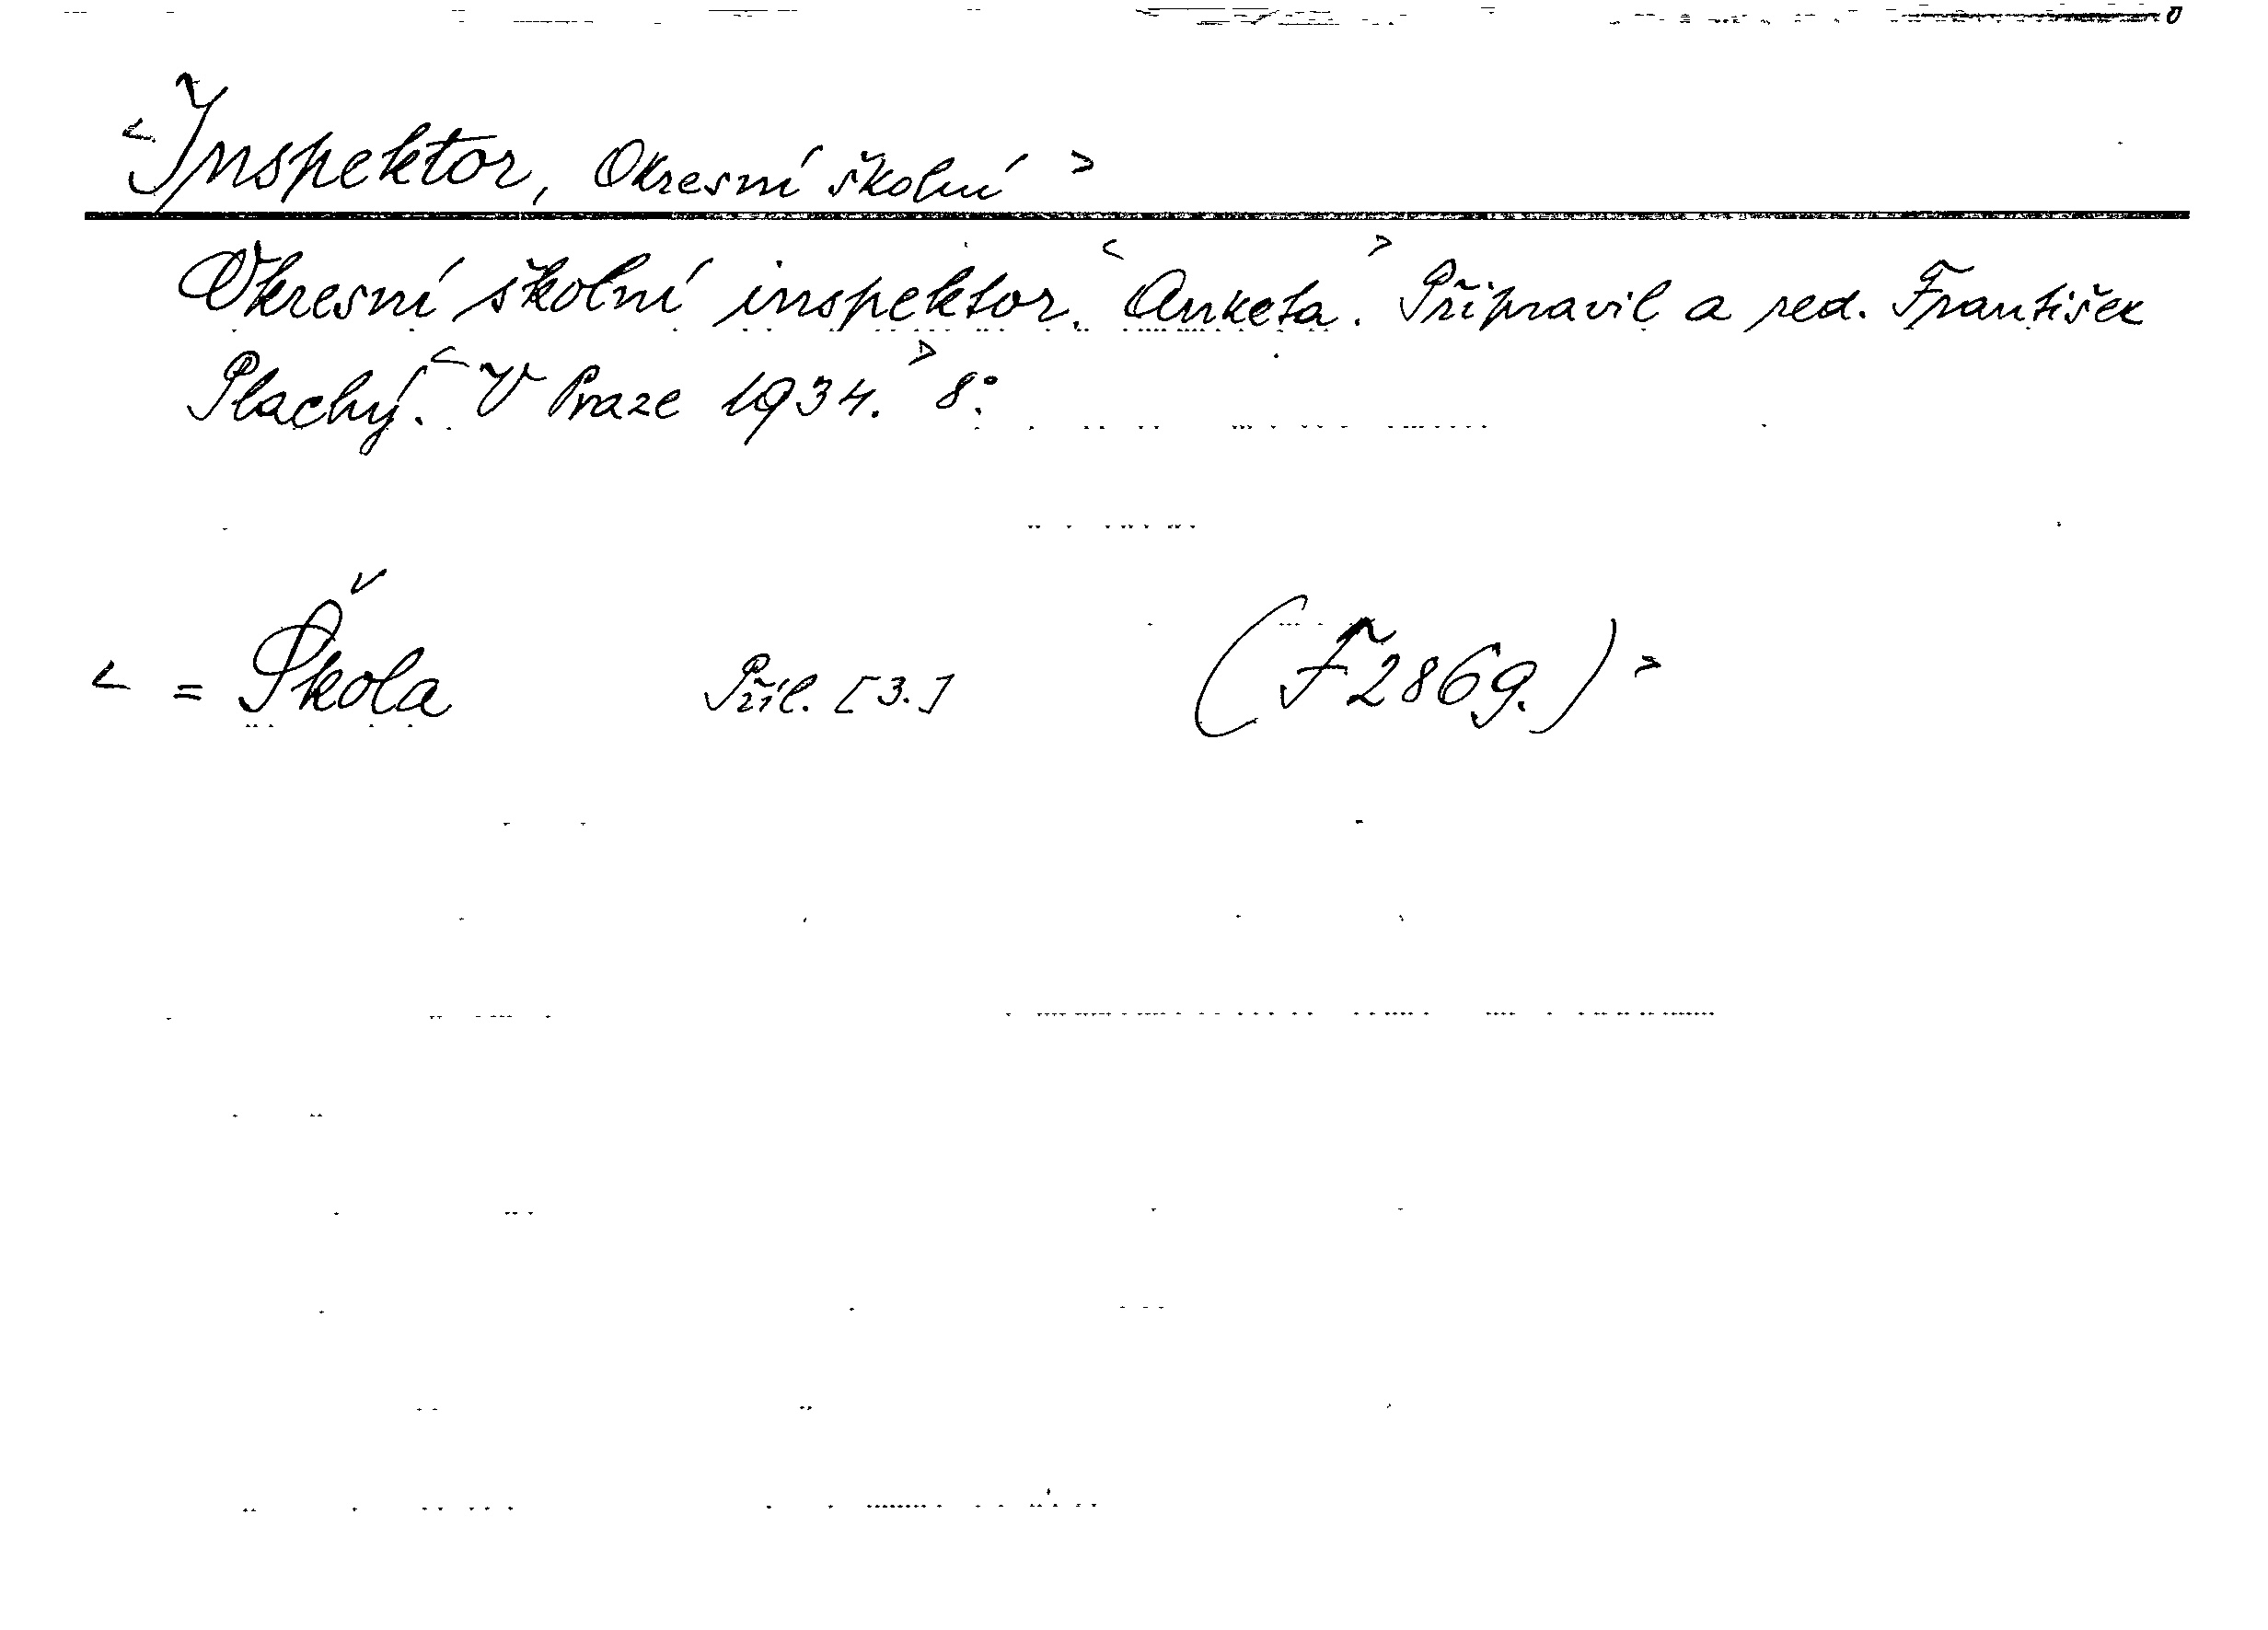 <Inspektor, Okresní školní>
Okresní školní inspektor. <Anketa.> Připravil a red. František
Plachý. <V Praze 1934.> 8°.
< = Škola Příl. [3.] (F2869.) >